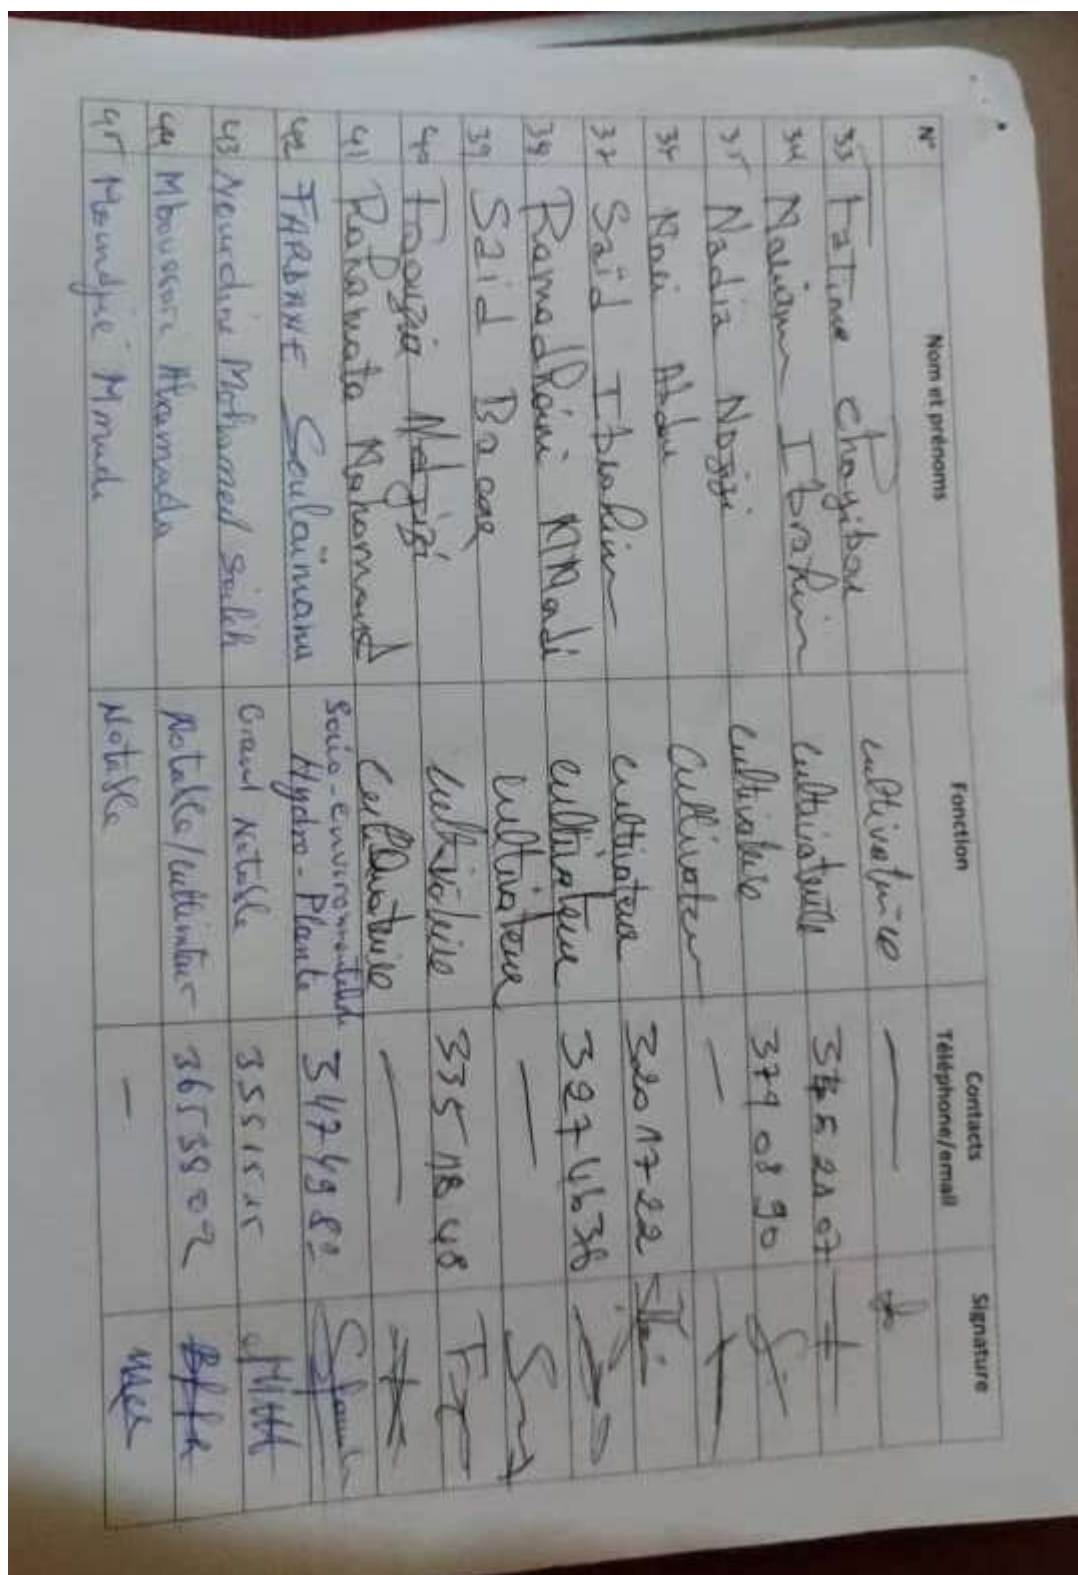 N° Nom et prénoms Fonction Contacts Téléphone/email Signature
33 Fatima Chagibou cultivatrice —
34 Mariam Ibrahim cultivateure 3752107
35 Nadia Ndjizi cultivatrice 3790890
36 Mari Abdou Cultivateur —
37 Saïd Ibrahim cultivateur 3201722
38 Ramadhoini MMadi cultivateur 3274638
39 Said Bacar cultivateur —
40 Faouzia Ndzizi cultivatrice 3351848
41 Rahamata Mohamed cultivatrice —
42 FARDANE Soulaïmana Socio-environnementaliste Hydro-Plante 3474982
43 Nourdine Mohamed Saileh Grand Notable 3551515
44 Ahamada Notable/cultivateur 3653902
45 Moundjié Mmadi Notable —